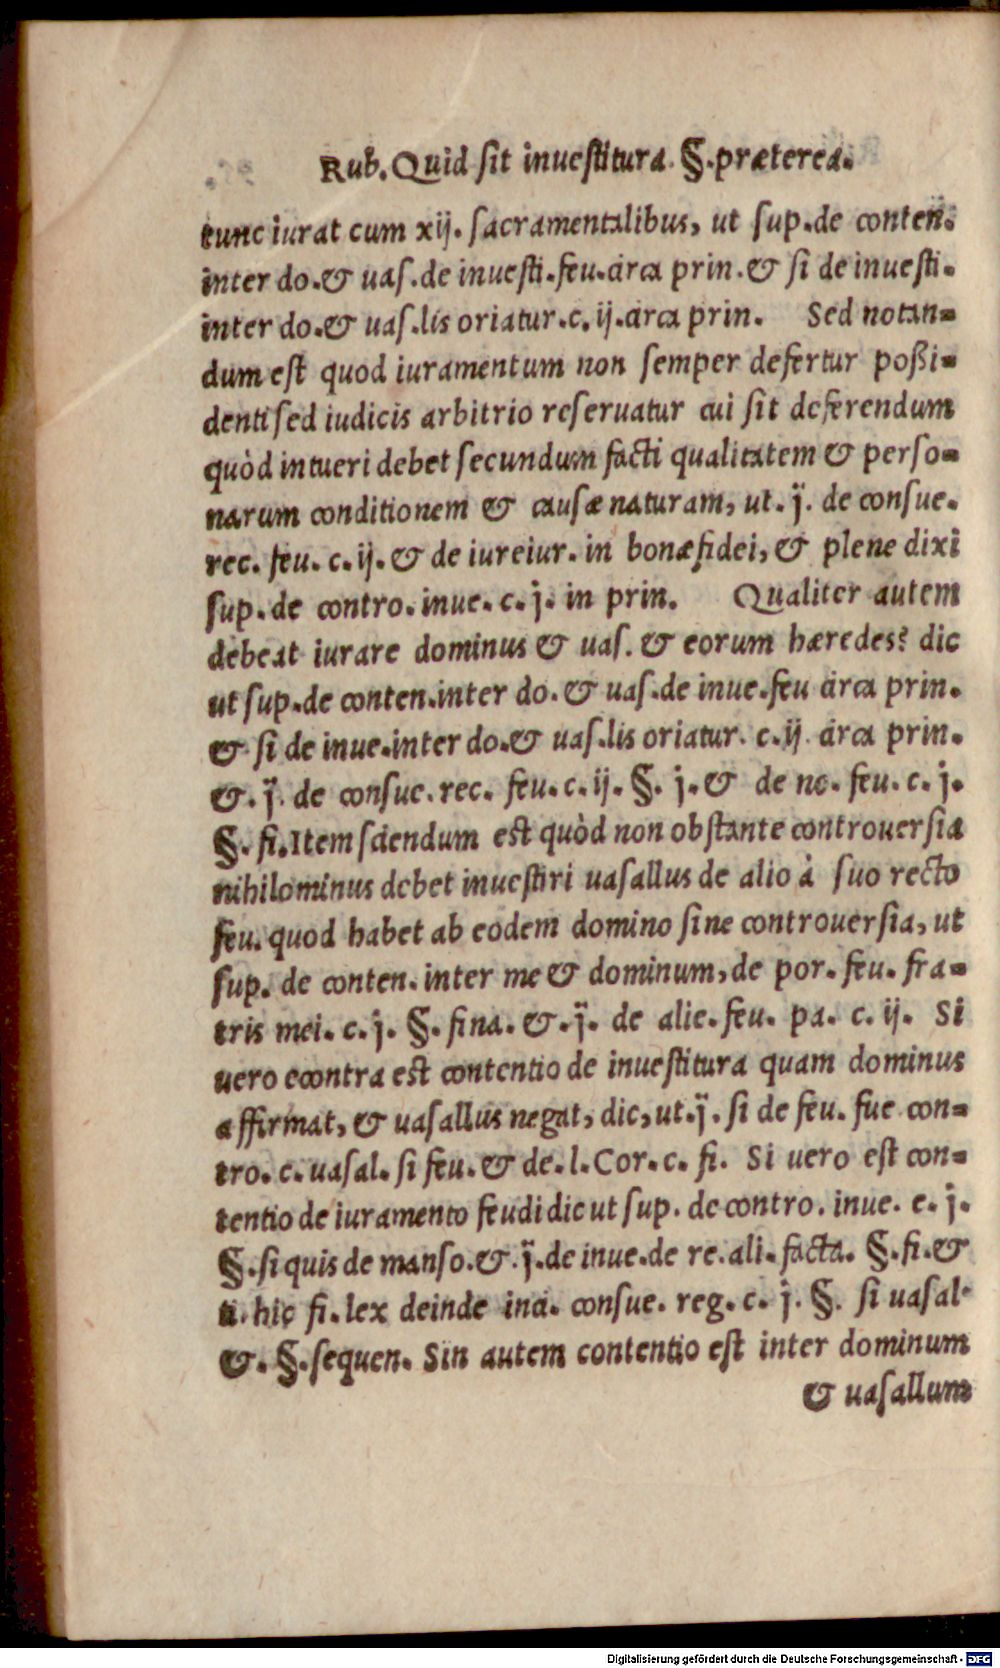 Rub. Quid sit inuestitura §. præterea.
tunc iurat cum xij. sacramentalibus, ut sup.de conten.
inter do.& uas.de inuesti.feu.circa prin.& si de inuesti-
inter do.& uas.lis oriatur.c.ij.circa prin. Sed notan-
dum est quod iuramentum non semper defertur poßi-
denti sed iudicis arbitrio reseruatur cui sit deferendum
quòd intueri debet secundum facti qualitatem & perso-
narum conditionem & causæ naturam, ut. j. de consue.
rec. feu. c. ij. & de iureiur. in bonæfidei, & plene dixi
sup. de contro. inue. c. j. in prin. Qualiter autem
debeat iurare dominus & uas. & eorum hæredes? dic
ut sup.de conten.inter do. & uas.de inue.feu circa prin.
& si de inue.inter do.& uas.lis oriatur. c.ij. circa prin.
&. j. de consue. rec. feu. c. ij. §. j. & de no. feu. c. j.
§. fi. Item sciendum est quòd non obstante controuersia
nihilominus debet inuestiri uasallus de alio à suo recto
feu. quod habet ab eodem domino sine controuersia, ut
sup. de conten. inter me & dominum, de por. feu. fra-
tris mei. c. j. §. fina. &. j. de alie. feu. pa. c. ij. Si
uero econtra est contentio de inuestitura quam dominus
affirmat, & uasallus negat, dic, ut. j. si de feu. fue con-
tro. c. uasal. si feu. & de. l. Cor. c. fi. Si uero est con-
tentio de iuramento feudi dic ut sup. de contro. inue. c. j.
§. si quis de manso. &. j. de inue.de re. ali. facta. §. fi. &
ti. hic fi. lex deinde inci. consue. reg. c. j. §. si uasal.
&. §. sequen. Sin autem contentio est inter dominum
& uasallum
Digitalisierung gefördert durch die Deutsche Forschungsgemeinschaft - DFG